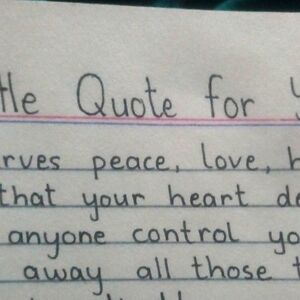 tle Quote for Y
rves peace, love, h
that your heart de
anyone control yo
away all those t